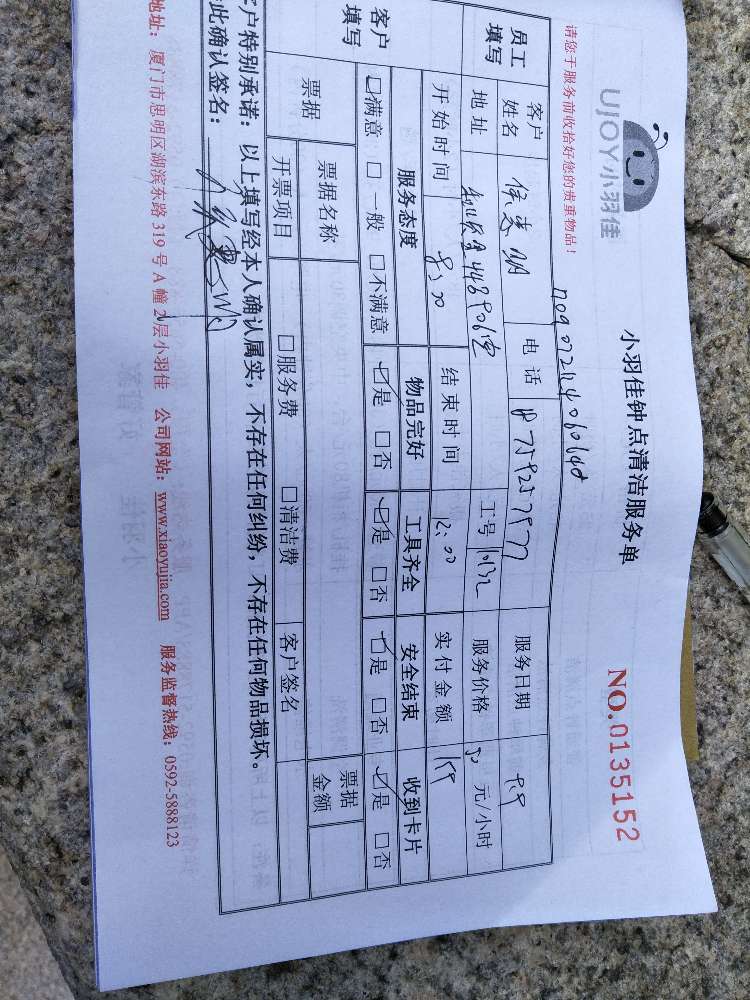 UJOY小羽佳
小羽佳钟点清洁服务单
NO.0135152
请您于服务前收拾好您的贵重物品！
员工填写 客户姓名 电话 服务日期 9.9
地址 工号 服务价格 元/小时
开始时间 8:00 结束时间 12:00 实付金额
客户填写 服务态度 物品完好 工具齐全 安全结束 收到卡片
☑满意 □一般 □不满意 ☑是 □否 ☑是 □否 ☑是 □否 ☑是 □否
票据 票据名称 票据金额
开票项目 □服务费 □清洁费 客户签名
客户特别承诺：以上填写经本人确认属实，不存在任何纠纷，不存在任何物品损坏。
此确认签名：
地址：厦门市思明区湖滨东路319号A幢2层小羽佳 公司网站：www.xiaoyujia.com 服务监督热线：0592-5888123